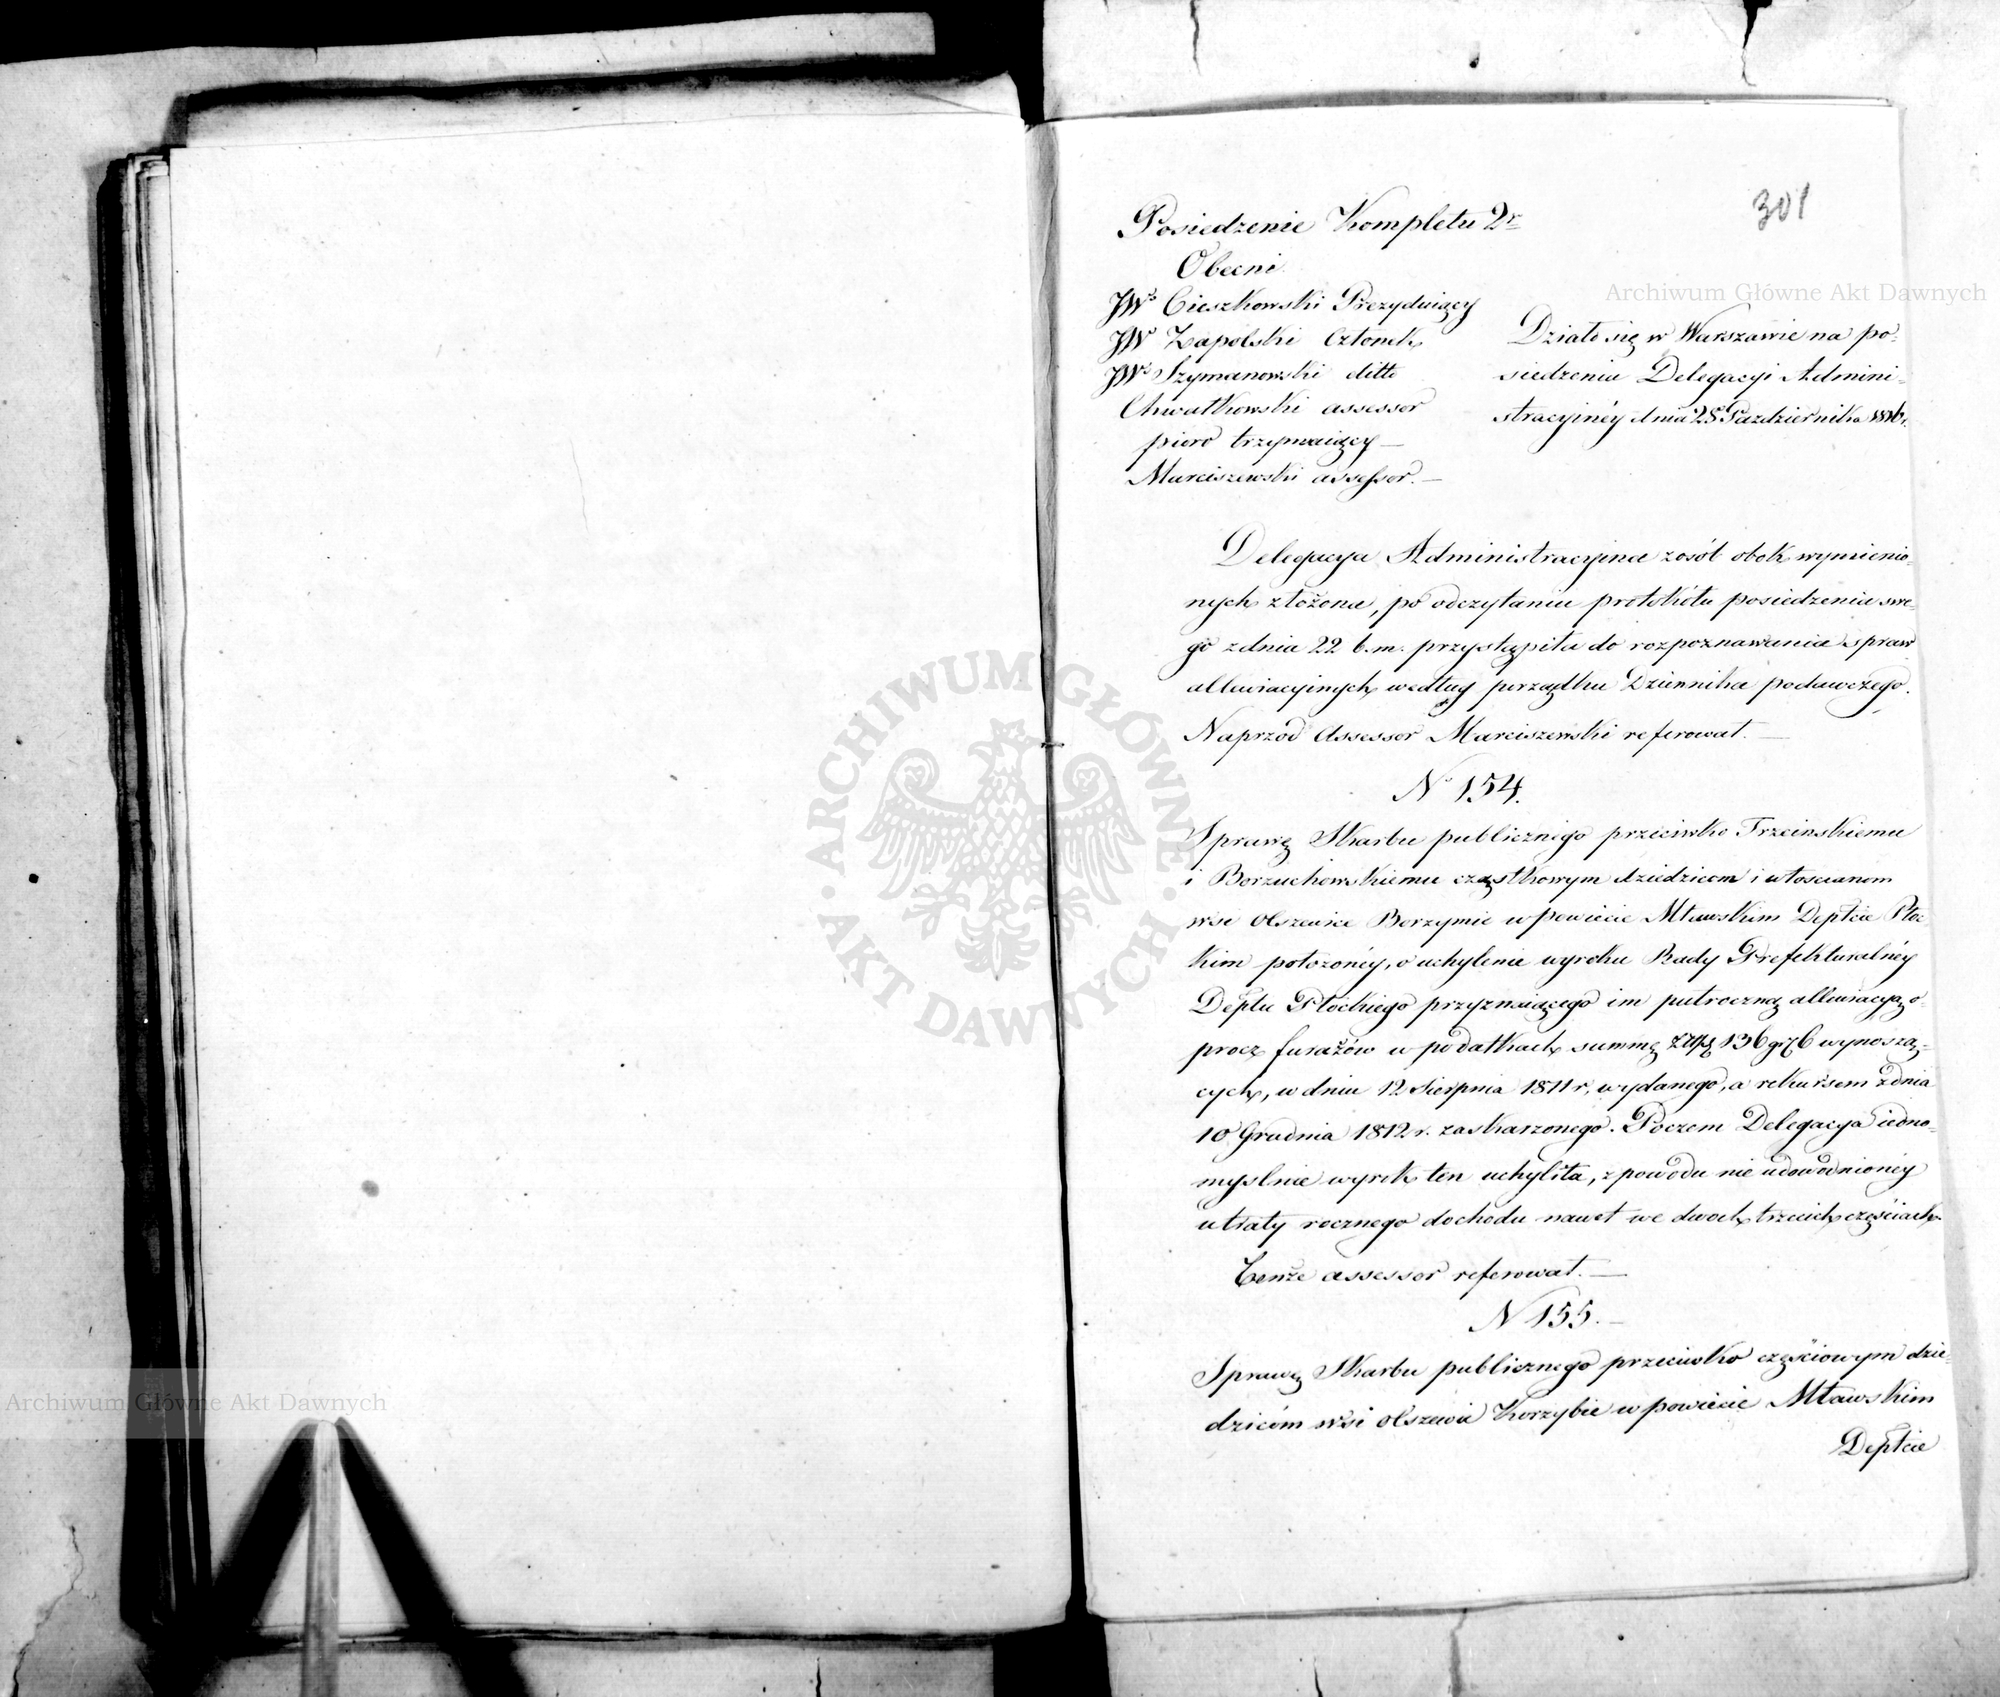 301
Posiedzenie Kompletu 2º
Obecni
JWº Cieszkowski Prezyduiący
JW Zapolski Członek
JWº Szymanowski ditto
Chwatkowski assessor
pioro trzymaiący —
Marciszewski assessor. —
Działo się w Warszawie na po-
siedzeniu Delegacyi Admini-
stracyinéy dnia 28 Pazdziernika 1816 r.
Delegacya Administracyina zosób obok wymienio-
nych złożona, po odczytaniu protokółu posiedzenia swe-
go zdnia 22 b.m. przystąpiła do rozpoznawania spraw
allewiacyinych według porządku Dziennika podawczego.
Naprzód Assessor Marciszewski referował. —
Nº 154.
Sprawę Skarbu publicznego przeciwko Trzcinskiemu
i Borzuchowskiemu cząstkowym dziedzicom i włoscianom
wsi Olszewice Borzymie w powiecie Mławskim Deptcie Płoc-
kim położonéy, o uchylenie wyroku Rady Prefekturalnéy
Deptu Płockiego przyznaiącego im putroczną allewiacyą o-
procz furażów w podatkach summę Złp 136 gr 6 wynoszą-
cych, w dniu 12 Sierpnia 1811 r, wydanego, a rekursem zdnia
10 Grudnia 1812 r. zaskarzonego. Poczem Delegacya iedno-
myslnie wyrok ten uchyliła, z powodu nie udowodnionéy
utraty rocznego dochodu nawet we dwoch trzecich częściach.
Tenże assessor referował. —
N 155. —
Sprawę Skarbu publicznego przeciwko częściowym dzie-
dzicóm wsi Olszewie Korzybie w powiecie Mławskim
Deptcie
Archiwum Główne Akt Dawnych
Archiwum Główne Akt Dawnych
ARCHIWUM GŁÓWNE · AKT DAWNYCH ·